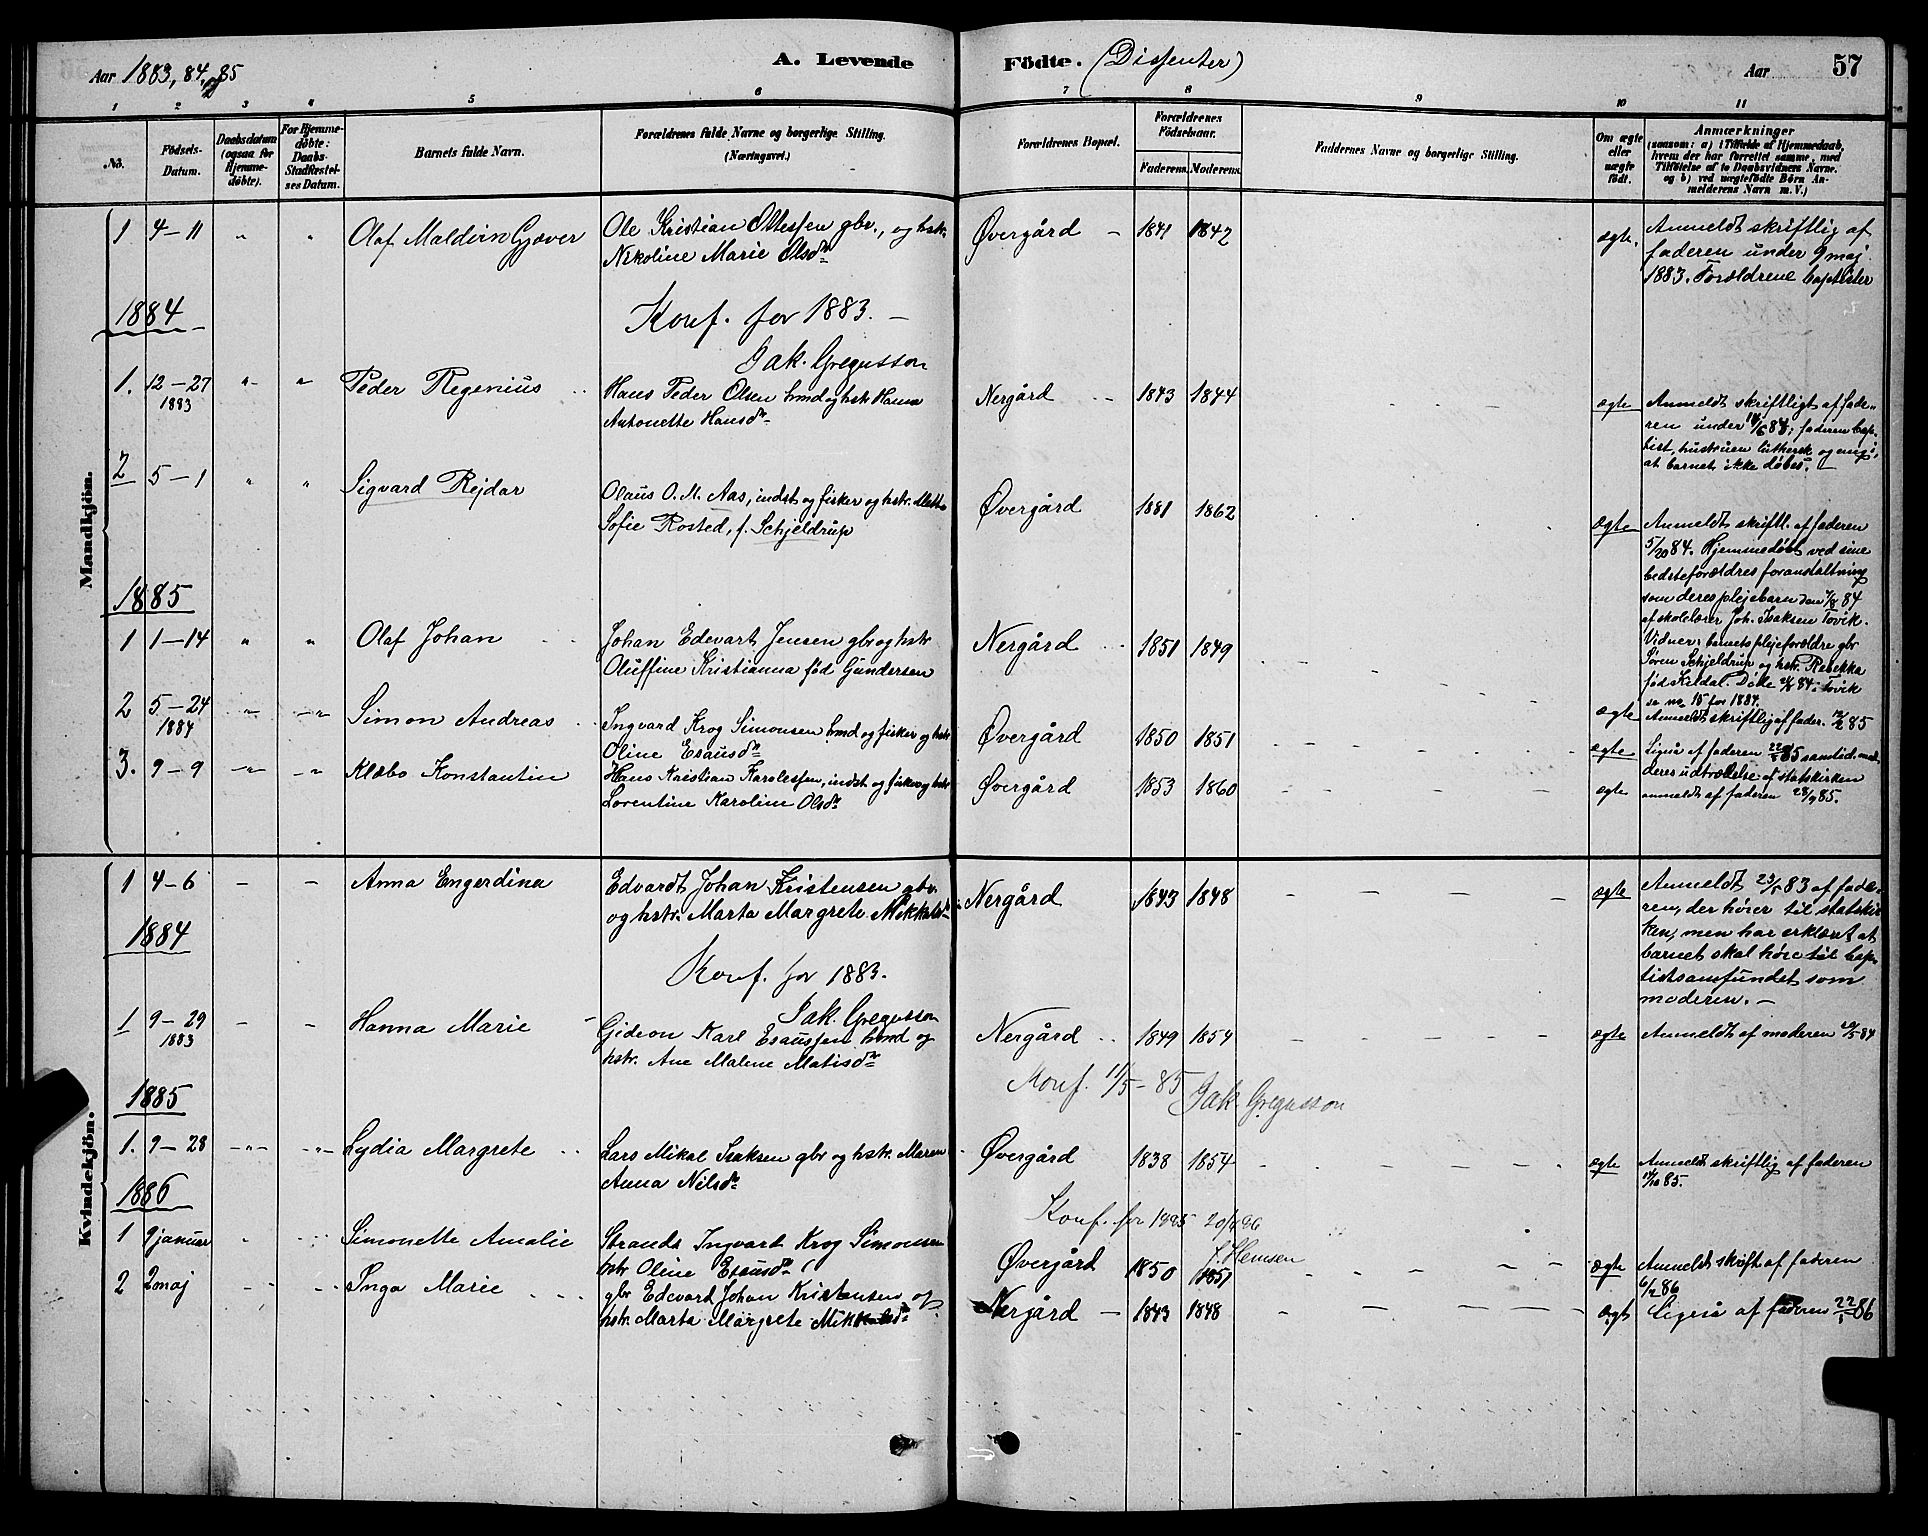 Aar 1883, 84, og 85
A. Levende
Födte. (Dissenter)
Aar
57
1 2 3 4 5 6 7 8 9 10 11
No.
Födsels-Datum.
Daabsdatum (ogsaa for Hjemme-döbte).
For Hjemme-döbte: Daabs-Stadfæstel-ses Datum.
Barnets fulde Navn.
Forældrenes fulde Navne og borgerlige Stilling.
(Næringsvei.)
Forældrenes Bopæl.
Forældrenes Födselsaar.
Faderens. Moderens.
Faddernes Navne og borgerlige Stilling.
Om ægte eller uægte födt.
Anmærkninger
(saasom: a) i Tilfælde af Hjemmedaab,
hvem der har forrettet samme, med
Tilföielse af to Daabsvidners Navne.
og b) ved uægtefödte Börn An-
melderens Navn m. V.)
Mandkjön.
1 4–11 " " Olaf Maldvin Gjæver
Ole Kristian Ottessen gbr., og hstr.
Nikoline Marie Olsdr
Øvergård – 1841 1842
ægte.
Anmeldt skriftlig af
faderen under 9 maj
1883. Forældrene baptister
1884
Konf. for 1883. –
Jak. Gregusson
1. 12–27 1883 " " Peder Regenius
Hans Peder Olsen hmd og hstr. Hanna
Antonette Hansdr
Nergård 1843 1844
ægte
Anmeldt skriftligt af fade-
ren under 84; faderen bap-
tist, hustruen luthersk og enige i,
at barnet ikke døbes.
2 5–1 " " Sigvard Rejdar
Olaus O. M. Aas, indst og fisker og hstr. Mette
Sofie Rosted, f. Schjeldrup
Øvergård 1881 1862
ægte
Anmeldt skriftl. af faderen
5/20 84. Hjemmedøbt ved sine
bedsteforældres foranstaltning
som deres plejebarn den 84
af skolelærer Joh. Isaksen Tovik.
Vidner: barnets plejeforældre gbr
Søren Schjeldrup og hstr. Rebekka
født Kildal. 84 i Tovik
se no 15 for 1884.
1885
1 1–14 " " Olaf Johan
Johan Edevart Jensen gbr og hstr
Oluffine Kristianna fød Gundersen
Nergård 1851 1849
ægte
Anmeldt skriftlig af fader. 85
2 5–24 1884 " " Simon Andreas
Ingvard Krog Simonsen hmd og fisker og hstr
Oline Esausdr
Øvergård 1850 1851
ægte
Ligeså af faderen 85 samtid. med
deres udtrædelse af statskirken
3. 9–9 " " Klæbo Konstantin
Hans Kristian Karolessen, indst og fisker og hstr
Lorentine Karoline Olsdr
Øvergård 1853 1860
ægte
anmeldt af faderen 28/9 85.
Kvindekjön.
1 4–6 – – Anna Engerdina
Edvardt Johan Kristensen gbr.
og hstr. Marta Margrete Mikkelsdr
Nergård 1843 1848
ægte
Anmeldt 23/5 83 af fade-
ren, der hører til statskir-
ken, men har erklæret at
barnet skal høre til bap-
tistsamfundet som
moderen. –
1884
Konf. for 1883.
Jak. Gregusson
1 9–29 1883 – – Hanna Marie
Gideon Karl Esaussen hmd og
hstr. Ane Malene Matisdr
Nergård 1849 1854
ægte
Anmeldt af moderen 20/5 84
Konf. 11/5–85 Jak. Gregusson
1885
1. 9–28 – " – – " – Lydia Margrete
Lars Mikal Isaksen gbr og hstr. Maren
Anna Nilsdr
Øvergård 1838 1854
ægte
Anmeldt skriftlig af faderen
85.
1886
Konf. for 1885
1 9 januar Simonette Amalie
Strands Ingvart Krog Simonsen
hstr Oline Esausdr
Øvergård 1850 1851
ægte
Anmeldt skriftl af faderen
6/2 86
2 2 maj Inga Marie
gbr Edevart Johan Kristensen og
hstr Marta Margrete Mikkelsdr
Nergård – 1843 1848
ægt
Ligeså af faderen 86